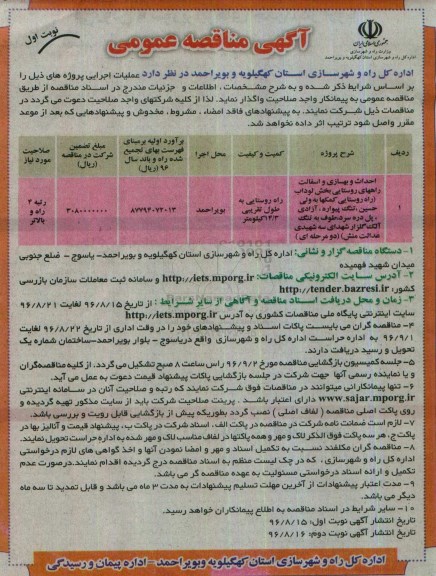 جمهوری اسلامی ایران
وزارت راه و شهرسازی
اداره کل راه و شهرسازی استان کهگیلویه و بویراحمد
آگهی مناقصه عمومی
نوبت اول
اداره کل راه و شهرسازی استان کهگیلویه و بویراحمد در نظر دارد عملیات اجرایی پروژه های ذیل را
بر اساس شرایط ذکر شده و به شرح مشخصات ، اطلاعات و جزئیات مندرج در اسناد مناقصه از طریق
مناقصه عمومی به پیمانکار واجد صلاحیت واگذار نماید. لذا از کلیه شرکتهای واجد صلاحیت دعوت می گردد در
مناقصات ذیل شرکت نمایند. به پیشنهادهای فاقد امضاء ، مشروط ، مخدوش و پیشنهادهایی که بعد از موعد
مقرر واصل شود ترتیب اثر داده نخواهد شد.
ردیف
شرح پروژه
کمیت و کیفیت
محل اجرا
برآورد اولیه برمبنای فهرست بهای تجمیع شده راه و باند سال ۹۶ (ریال)
مبلغ تضمین شرکت در مناقصه (ریال)
صلاحیت مورد نیاز
۱
احداث و بهسازی و آسفالت
راههای روستایی بخش لوداب
(راه روستایی کمکها به ولی
حسین ،تنگ پیواره ، آزادی
، پل دره سرد،طوف به تنگ
آلک،گلزار شهدای سه شهیدی
عدالت منش) (دو مرحله ای)
راه روستایی به طول تقریبی ۱۳/۳کیلومتر
بویراحمد
۸۷۷۹۴۰۷۲۰۱۳
۳۰۸۰۰۰۰۰۰۰
رتبه ۴ راه و بالاتر
۱- دستگاه مناقصه گزار و نشانی: اداره کل راه و شهرسازی استان کهگیلویه و بویراحمد- یاسوج - ضلع جنوبی
میدان شهید فهمیده
۲- آدرس سایت الکترونیکی مناقصات: http://iets.mporg.ir و سامانه ثبت معاملات سازمان بازرسی
کشور: http://tender.bazresi.ir
۳- زمان و محل دریافت اسناد مناقصه و آگاهی از سایر شرایط : از تاریخ ۹۶/۸/۱۵ لغایت ۹۶/۸/۲۱
سایت اینترنتی پایگاه ملی مناقصات کشوری به آدرس http://iets.mporg.ir
۴- مناقصه گران می بایست پاکات اسناد و پیشنهادهای خود را در وقت اداری از تاریخ ۹۶/۸/۲۲ لغایت
۹۶/۹/۱ به اداره حراست اداره کل راه و شهرسازی واقع دریاسوج - بلوار بویراحمد-ساختمان شماره یک
تحویل و رسید دریافت دارند.
۵- جلسه کمیسیون بازگشایی مناقصه مورخ ۹۶/۹/۲ راس ساعت ۸ صبح تشکیل می گردد. از کلیه مناقصه گران
و یا نماینده رسمی آنها جهت شرکت در جلسه بازگشایی پاکات پیشنهاد قیمت دعوت به عمل می آید.
۶- تنها پیمانکارانی میتوانند در مناقصات فوق شرکت نمایند که رتبه و صلاحیت آنان در سامانه اینترنتی
www.sajar.mporg.ir دارای اعتبار باشد . پرینت صلاحیت شرکت باید از سایت مذکور تهیه گردیده و
روی پاکت اصلی مناقصه ( لفاف اصلی ) نصب گردد بطوریکه پیش از بازگشایی قابل رویت و بررسی باشد.
۷- لازم است ضمانت نامه شرکت در مناقصه در پاکت الف ، اسناد شرکت در پاکت ب، پیشنهاد قیمت و آنالیز بها در
پاکت ج ، هر سه پاکت فوق الذکر لاک و مهر و همه پاکتها در لفاف مناسب لاک و مهر شده به اداره حراست تحویل نمایند.
۸- مناقصه گران مکلفند نسبت به تکمیل اسناد و مهر و امضا نمودن آنها و اخذ گواهی های لازم درخواستی
اداره کل راه و شهرسازی ، که در چک لیست منظم به اسناد مناقصه درج گردیده اقدام نمایند.درصورت عدم
تکمیل و ارائه اسناد درخواستی مسئولیت به عهده مناقصه گر می باشد.
۹- مدت اعتبار پیشنهادات از آخرین مهلت تسلیم پیشنهادات به مدت ۳ ماه می باشد و قابل تمدید تا سه ماه
دیگر می باشد.
۱۰- سایر شرایط در اسناد مناقصه به اطلاع پیمانکاران خواهد رسید.
تاریخ انتشار آگهی نوبت اول: ۹۶/۸/۱۵
تاریخ انتشار آگهی نوبت دوم: ۹۶/۸/۱۶
اداره کل راه و شهرسازی استان کهگیلویه وبویراحمد - اداره پیمان و رسیدگی